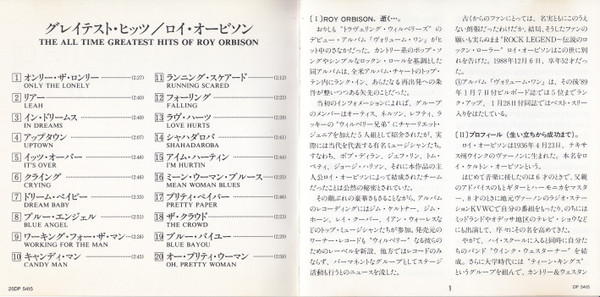 グレイテスト・ヒッツ／ロイ・オービソン
THE ALL TIME GREATEST HITS OF ROY ORBISON
1 オンリー・ザ・ロンリー (2:27)
ONLY THE LONELY
2 リアー
LEAH
3 イン・ドリームス
IN DREAMS
4 アップタウン
UPTOWN
5 イッツ・オーバー
IT'S OVER
6 クライング
CRYING
7 ドリーム・ベイビー
DREAM BABY
8 ブルー・エンジェル
BLUE ANGEL
9 ワーキング・フォー・ザ・マン
WORKING FOR THE MAN
10 キャンディ・マン
CANDY MAN
11 ランニング・スケアード (2:12)
RUNNING SCARED
12 フォーリング
FALLING
13 ラヴ・ハーツ
LOVE HURTS
14 シャハダロバ
SHAHADAROBA
15 アイム・ハーティン
I'M HURTIN
16 ミーン・ウーマン・ブルース
MEAN WOMAN BLUES
17 プリティ・ペイパー
PRETTY PAPER
18 ザ・クラウド
THE CROWD
19 ブルー・バイユー
BLUE BAYOU
20 オー・プリティ・ウーマン
OH, PRETTY WOMAN
25DP 5415
［Ⅰ］ROY ORBISON, 逝く…。
おりしも“トラヴェリング・ウィルベリーズ”の
デビュー・アルバム『ヴォリューム・ワン』がヒ
ット中のさなかだった。カントリー系のポップ・ソ
ングやシンプルなロックン・ロールを基調にした
同アルバムは、全米アルバム・チャートのトップ・
テン内にランク・イン、あらたなる再出発への条
件が整いつつある矢先のことだった。
当初のインフォメーションによれば、グループ
のメンバーはオーティス、ネルソン、レフティ、ラ
ッキーの“ウィルベリー兄弟”にチャーリー・T・
ジュニアを加えた5人組として紹介されたが、実
際には当代を代表する有名ミュージシャンたち、
すなわち、ボブ・ディラン、ジェフ・リン、トム・
ペティ、ジョージ・ハリソン、それに本作品の主
人公ロイ・オービソンによって結成されたチーム
だったことは公然の秘密とされていた。
その顔ぶれの豪華さもさることながら、アルバム
のレコーディングにはジム・ケルトナー、ジム・
ホーン、レイ・クーパー、イアン・ウォーレスな
どのトップ・ミュージシャンたちが参加。発売元の
ワーナー・レコードも“ウィルベリー”なる縁から
のためのレーベルを新設、他方ではレコードのみ
ならず、パーマネントなグループとしてステージ
活動も行うとのニュースを流した。
古くからのファンにとっては、名実ともにこのうえ
ない朗報だったわけだが、結局、そうしたファンの
願いもむなしく“ROCK LEGEND＝伝説のロ
ックン・ローラー”ロイ・オービソンはこの世に別
れを告げた。1988年12月6日、享年52才だっ
た。
①アルバム『ヴォリューム・ワン』は、その後'89
年1月7日付ビルボード誌では5位までラン
ク・アップ、1月28日付同誌ではベスト・スリー
入りをはたしている。
［Ⅱ］プロフィール（生い立ちから成功まで）。
ロイ・オービソンは1936年4月23日、テキサ
ス州ウインクのヴァーノンに生まれた。本名をロ
イ・ケルトン・オービソンという。
はじめて音楽に接したのは6才のときで、父親
のアドバイスのもとギターとハーモニカをマスタ
ー。8才のときに地元ヴァーノンのラジオ・ステー
ションKVWCで自分の番組をもったり、のちには
ミッドランドやオデッサ地区のテレビ・ショウなど
にも出演して、序々にその名を高めてきた。
やがて、ハイ・スクールに入ると同時に自分た
ちのバンド“ウインク・ウェスターナー”を結
成。さらに大学時代には“ティーン・キングス”
というグループを組んで、カントリー&ウェスタン
1
DP 5415